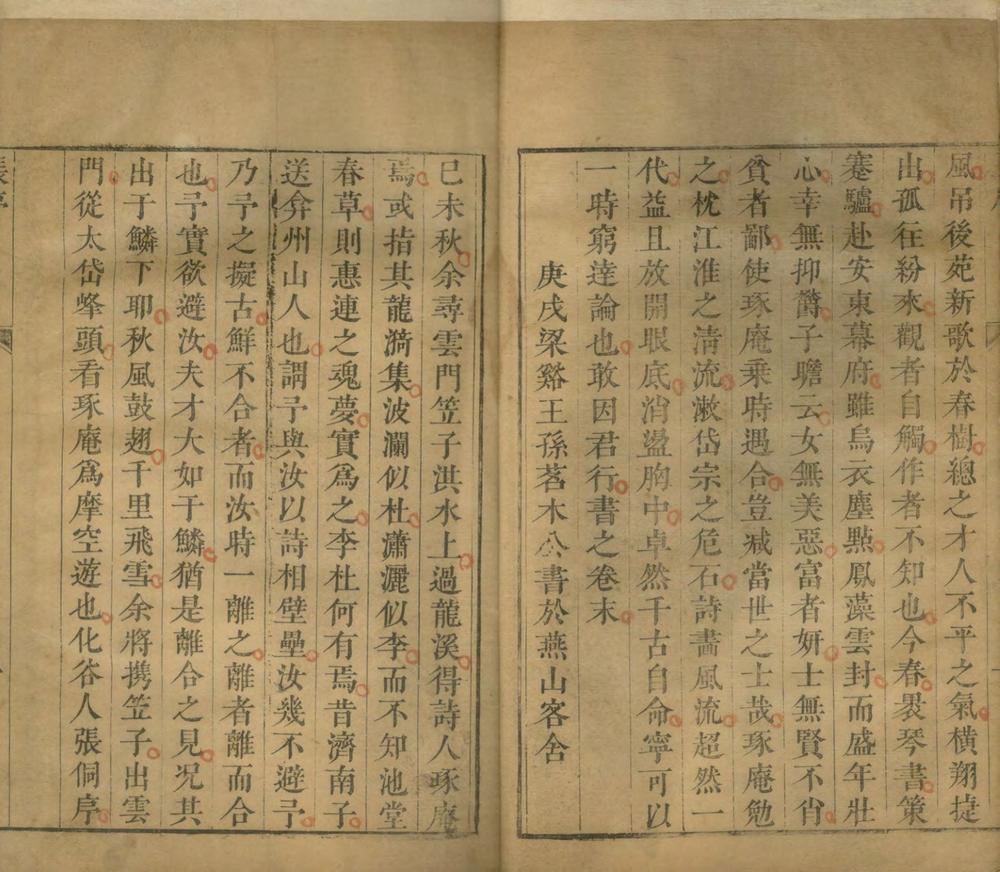 風吊後苑新歌於春樹總之才人不平之氣橫翔捷
出孤往紛來觀者自觸作者不知也今春褁琴書策
蹇驢赴安東幕府雖烏衣塵點鳳藻雲封而盛年壯
心幸無抑欝子瞻云女無美惡富者妍士無賢不肖
貧者鄙使琢庵乗時遇合豈減當世之士哉琢庵勉
之枕江淮之淸流漱岱宗之危石詩畵風流超然一
代益且放開眼底消盪胸中卓然千古自命寧可以
一時窮達論也敢因君行書之卷末
庚戌梁谿王孫茗木公書於燕山客舍
巳未秋余尋雲門笠子洪水上過龍溪得詩人琢庵
焉或指其龍漪集波瀾似杜瀟灑似李而不知池堂
春草則惠連之魂夢實爲之李杜何有焉昔濟南子
送弇州山人也謂予與汝以詩相壁壘汝幾不避予
乃予之擬古鮮不合者而汝時一離之離者離而合
也予實欲避汝夫才大如于鱗猶是離合之見况其
出于鱗下耶秋風鼓翅千里飛雪余將携笠子出雲
門從太岱峰頭看琢庵爲摩空遊也化谷人張侗序